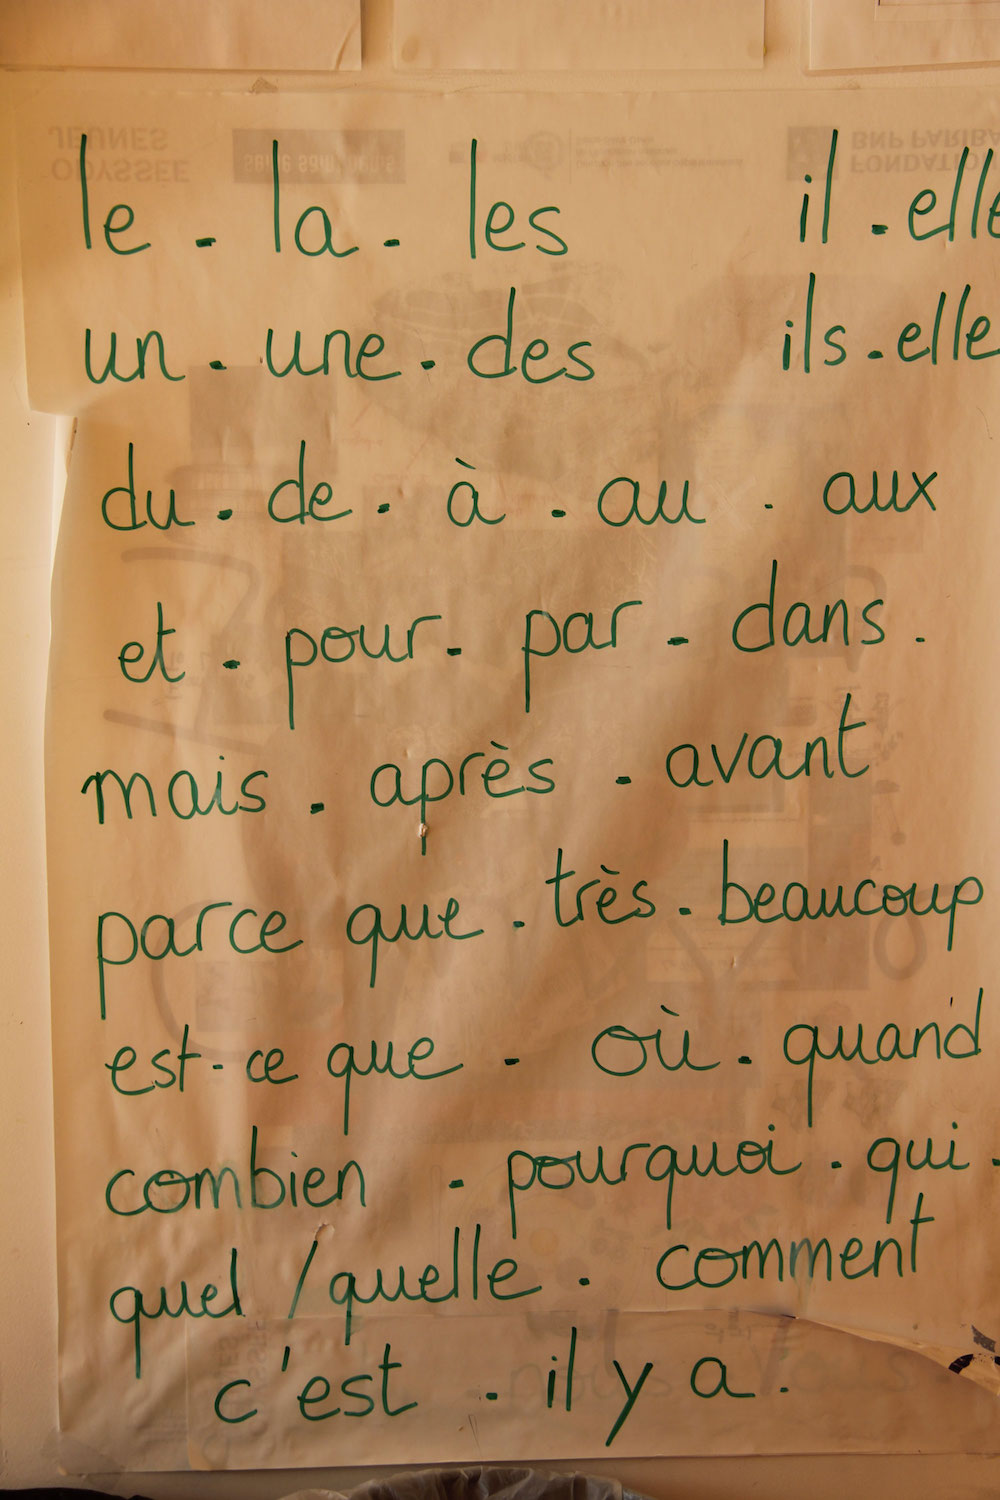 le . la . les il . elle
un . une . des ils . elle
du . de . à . au . aux
et . pour . par . dans .
mais . après . avant
parce que . très . beaucoup
est-ce que . où . quand
combien . pourquoi . qui .
quel / quelle . comment
c'est . il y a .